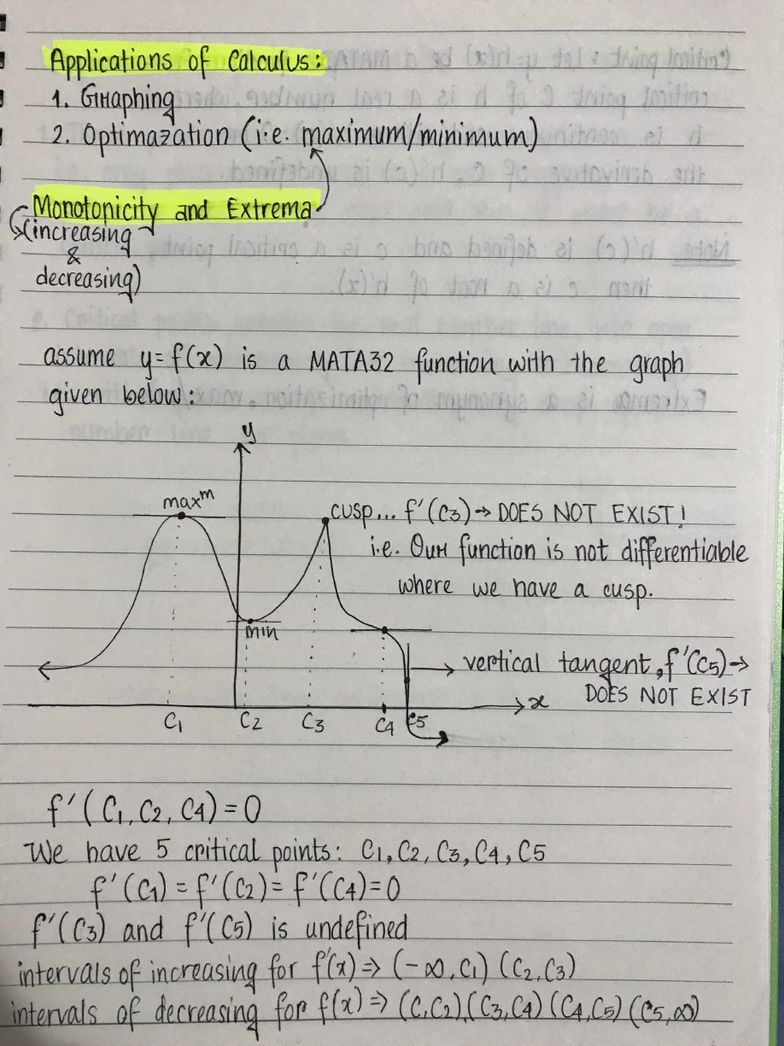 Applications of Calculus:
1. Graphing
2. Optimazation (i.e. maximum/minimum)
Monotonicity and Extrema
(increasing
&
decreasing)
assume y=f(x) is a MATA32 function with the graph
given below:
y
maxᵐ
cusp... f'(C3)→ DOES NOT EXIST!
i.e. Our function is not differentiable
where we have a cusp.
min
→ vertical tangent, f'(C5)→
DOES NOT EXIST
x
C1 C2 C3 C4 C5
f'(C1, C2, C4)=0
We have 5 critical points: C1, C2, C3, C4, C5
f'(C1) = f'(C2) = f'(C4)=0
f'(C3) and f'(C5) is undefined
intervals of increasing for f'(x) ⇒ (-∞, C1) (C2, C3)
intervals of decreasing for f(x) ⇒ (C1, C2) (C3, C4) (C4, C5) (C5, ∞)